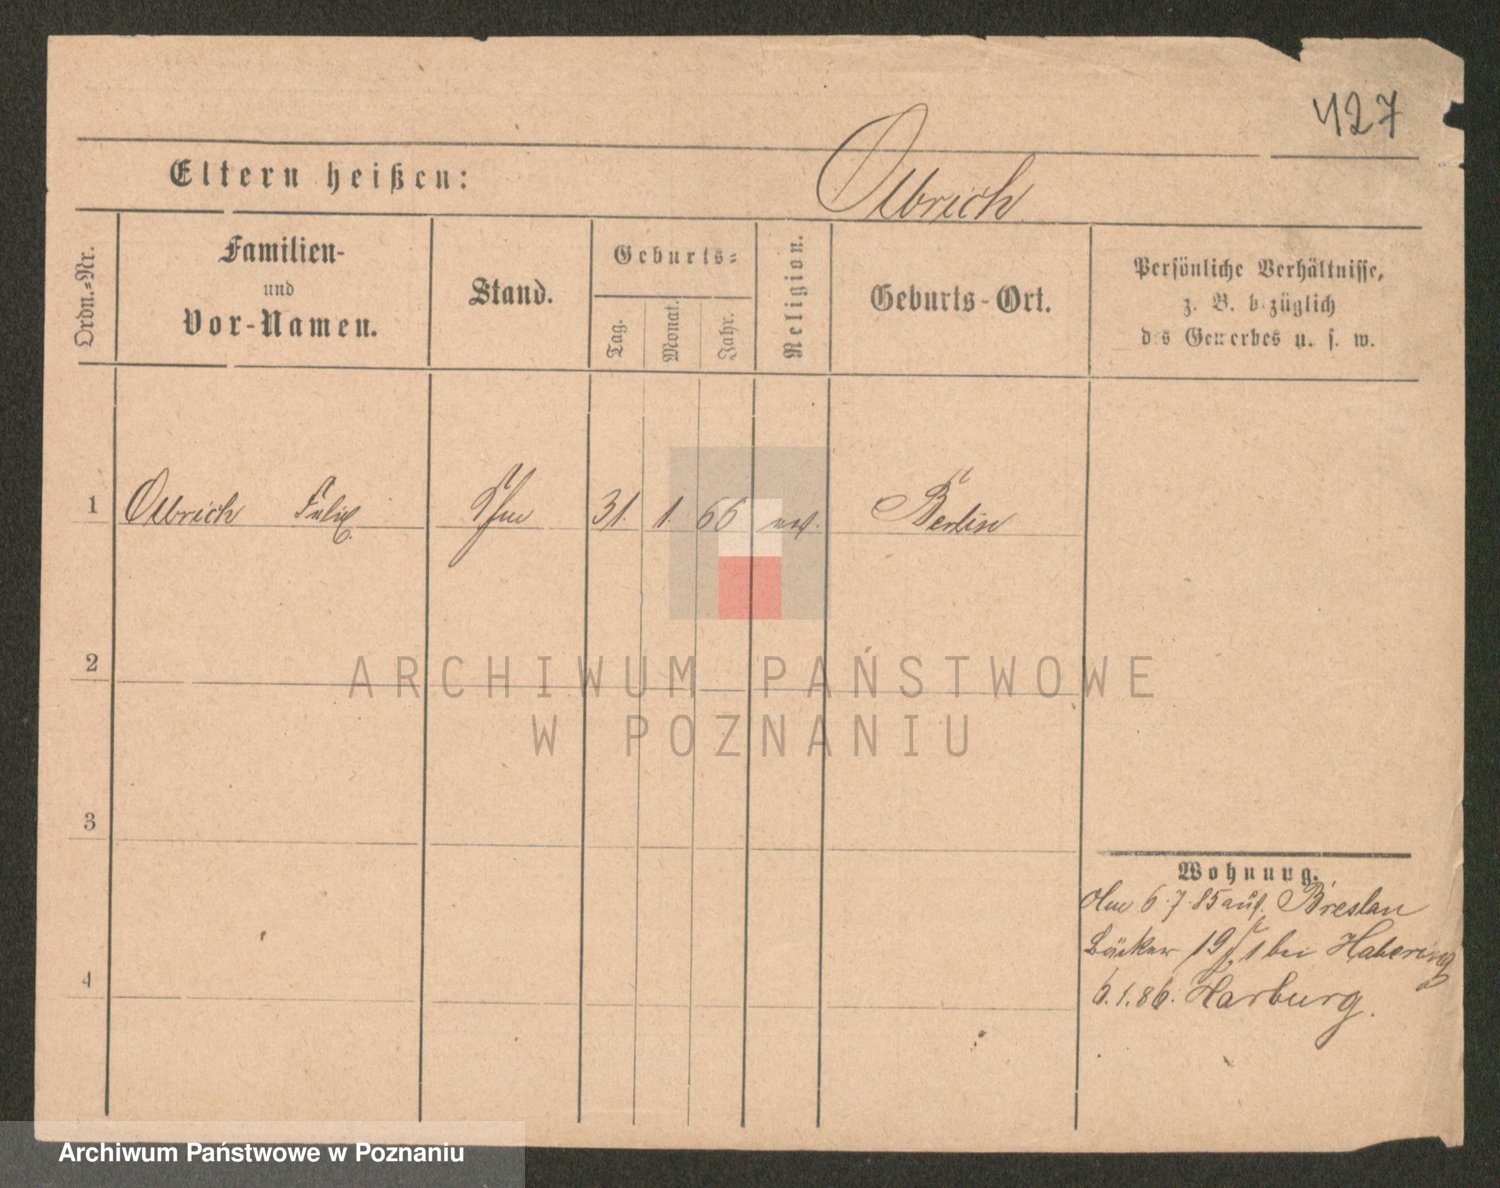 427
Eltern heißen: Olbrich
Ordn.=Nr.
Familien-
und
Vor-Namen.
Stand.
Geburts=
Tag.
Monat.
Jahr.
Religion.
Geburts-Ort.
Persönliche Verhältnisse,
z. B. bezüglich
des Gewerbes u. s. w.
1 Olbrich Felix 31. 1. 66 ev. Berlin
2
ARCHIWUM PAŃSTWOWE
W POZNANIU
3
Wohnung.
6.7.85 auf. Breslau
Bäcker 19 1 bei
4
6.1.86. Harburg.
Archiwum Państwowe w Poznaniu